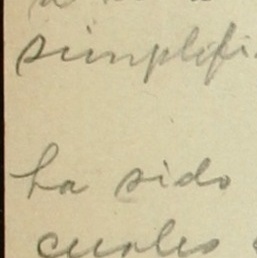 simplifi
ha sido
cuales